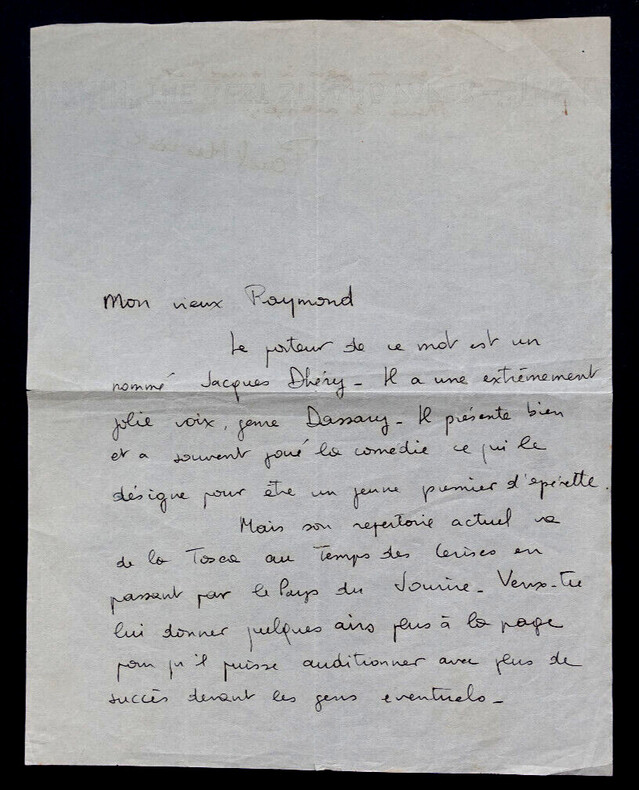 Mon vieux Raymond
Le porteur de ce mot est un
nommé Jacques Dhéry - Il a une extrêmement
jolie voix, genre Dassary - Il présente bien
et a souvent joué la comédie ce qui le
désigne pour être un jeune premier d'opérette.
Mais son repertoire actuel va
de la Tosca au Temps des Cerises en
passant par le Pays du Sourire - Veux-tu
lui donner quelques airs plus à la page
pour qu'il puisse auditionner avec plus de
succès devant les gens eventuels -